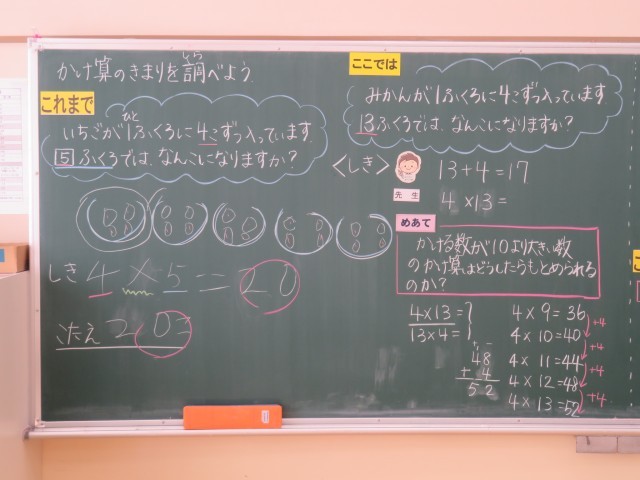 かけ算のきまりを調べよう
しら
これまで
いちごが1ふくろに4こずつ入っています。
ひと
5ふくろでは、なんこになりますか?
しき 4×5=20
こたえ 20こ
ここでは
みかんが1ふくろに4こずつ入っています
13ふくろでは、なんこになりますか?
<しき>
13+4=17
先生
4×13=
めあて
かける数が10より大きい数
のかけ算はどうしたらもとめられる
のか?
4×13=?
13×4=?
48
+ 4
52
4×9=36
+4
4×10=40
+4
4×11=44
+4
4×12=48
+4
4×13=52